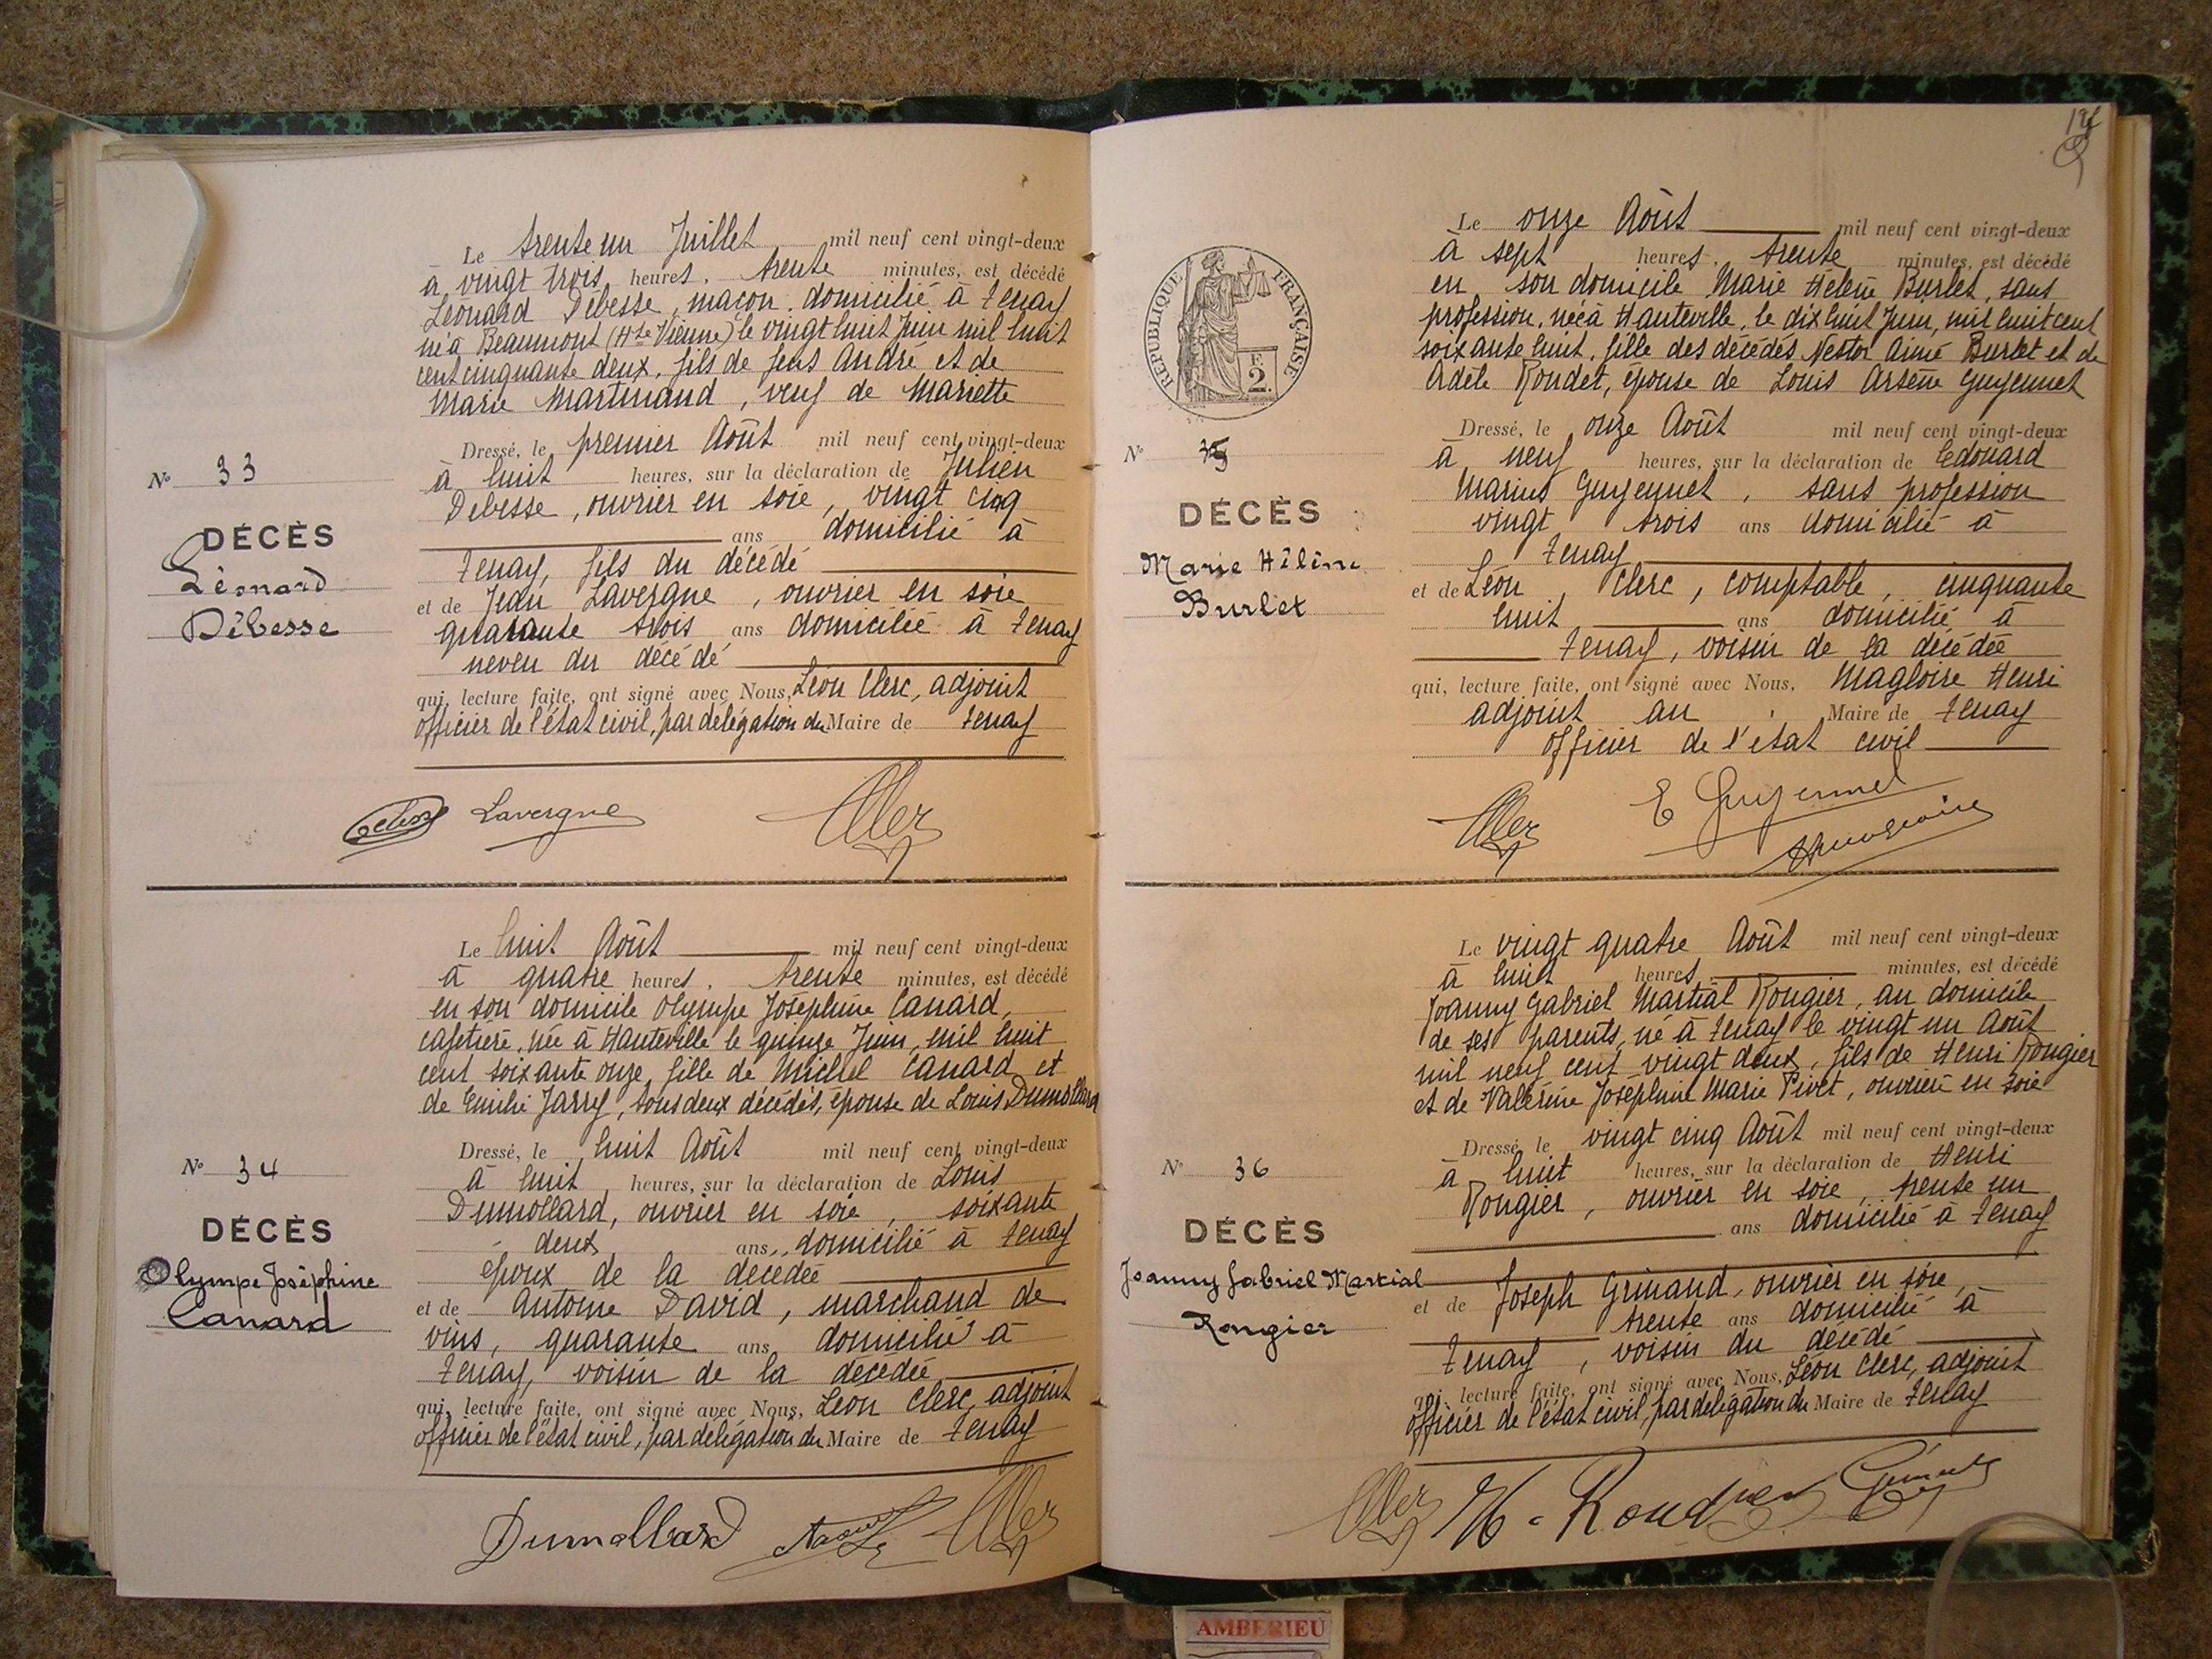 Le trente un Juillet mil neuf cent vingt-deux
à vingt trois heures, trente minutes, est décédé
Léonard Débesse, maçon, domicilié à Tenay
né à Beaumont (Hte Vienne) le vingt huit Juin mil huit
cent cinquante deux, fils de feus André et de
Marie Martinaud, veuf de Mariette
Dressé, le premier Août mil neuf cent vingt-deux
à huit heures, sur la déclaration de Julien
Debesse, ouvrier en soie, vingt cinq
ans domicilié à
Tenay, fils du décédé
et de Jean Lavergne, ouvrier en soie
quarante trois ans domicilié à Tenay
neveu du décédé
qui, lecture faite, ont signé avec Nous, Léon Clerc, adjoint
officier de l'état civil, par délégation du Maire de Tenay
No 33
DÉCÈS
Léonard
Débesse
Lavergne
Le huit Août mil neuf cent vingt-deux
à quatre heures, trente minutes, est décédé
en son domicile Olympe Joséphine Canard,
cafetière, née à Hauteville le quinze Juin, mil huit
cent soixante onze, fille de Michel Canard et
de Emilie Jarry, tous deux décédés, épouse de Louis Dumollard
Dressé, le huit Août mil neuf cent vingt-deux
à huit heures, sur la déclaration de Louis
Dumollard, ouvrier en soie, soixante
deux ans, domicilié à Tenay
époux de la décédée
et de Antoine David, marchand de
vins, quarante ans domicilié à
Tenay, voisin de la décédée
qui, lecture faite, ont signé avec Nous, Léon Clerc, adjoint
officier de l'état civil, par délégation du Maire de Tenay
No 34
DÉCÈS
Olympe Joséphine
Canard
Dumollard
RÉPUBLIQUE FRANÇAISE
E.
2.
Le onze Août mil neuf cent vingt-deux
à sept heures, trente minutes, est décédé
en son domicile Marie Hélène Burlet, sans
profession, née à Hauteville, le dix huit Juin, mil huit cent
soixante huit, fille des décédés Nestor Aimé Burlet et de
Adèle Rondet, épouse de Louis Arsène Guyennet
Dressé, le onze Août mil neuf cent vingt-deux
à neuf heures, sur la déclaration de Edouard
Marius Guyennet, sans profession
vingt trois ans domicilié à
Tenay
et de Léon Clerc, comptable, cinquante
huit ans domicilié à
Tenay, voisin de la décédée
qui, lecture faite, ont signé avec Nous, Magloire Henri
adjoint au Maire de Tenay
officier de l'état civil
No 35
DÉCÈS
Marie Hélène
Burlet
E Guyennet
Le vingt quatre Août mil neuf cent vingt-deux
à huit heures, minutes, est décédé
Joanny Gabriel Martial Rougier, au domicile
de ses parents, né à Tenay le vingt un Août
mil neuf cent vingt deux, fils de Henri Rougier
et de Valérine Joséphine Marie Pivet, ouvrière en soie
Dressé, le vingt cinq Août mil neuf cent vingt-deux
à huit heures, sur la déclaration de Henri
Rougier, ouvrier en soie, trente un
ans domicilié à Tenay
et de Joseph Grinand, ouvrier en soie,
trente ans domicilié à
Tenay, voisin du décédé
qui, lecture faite, ont signé avec Nous, Léon Clerc, adjoint
officier de l'état civil, par délégation du Maire de Tenay
No 36
DÉCÈS
Joanny Gabriel Martial
Rougier
AMBERIEU